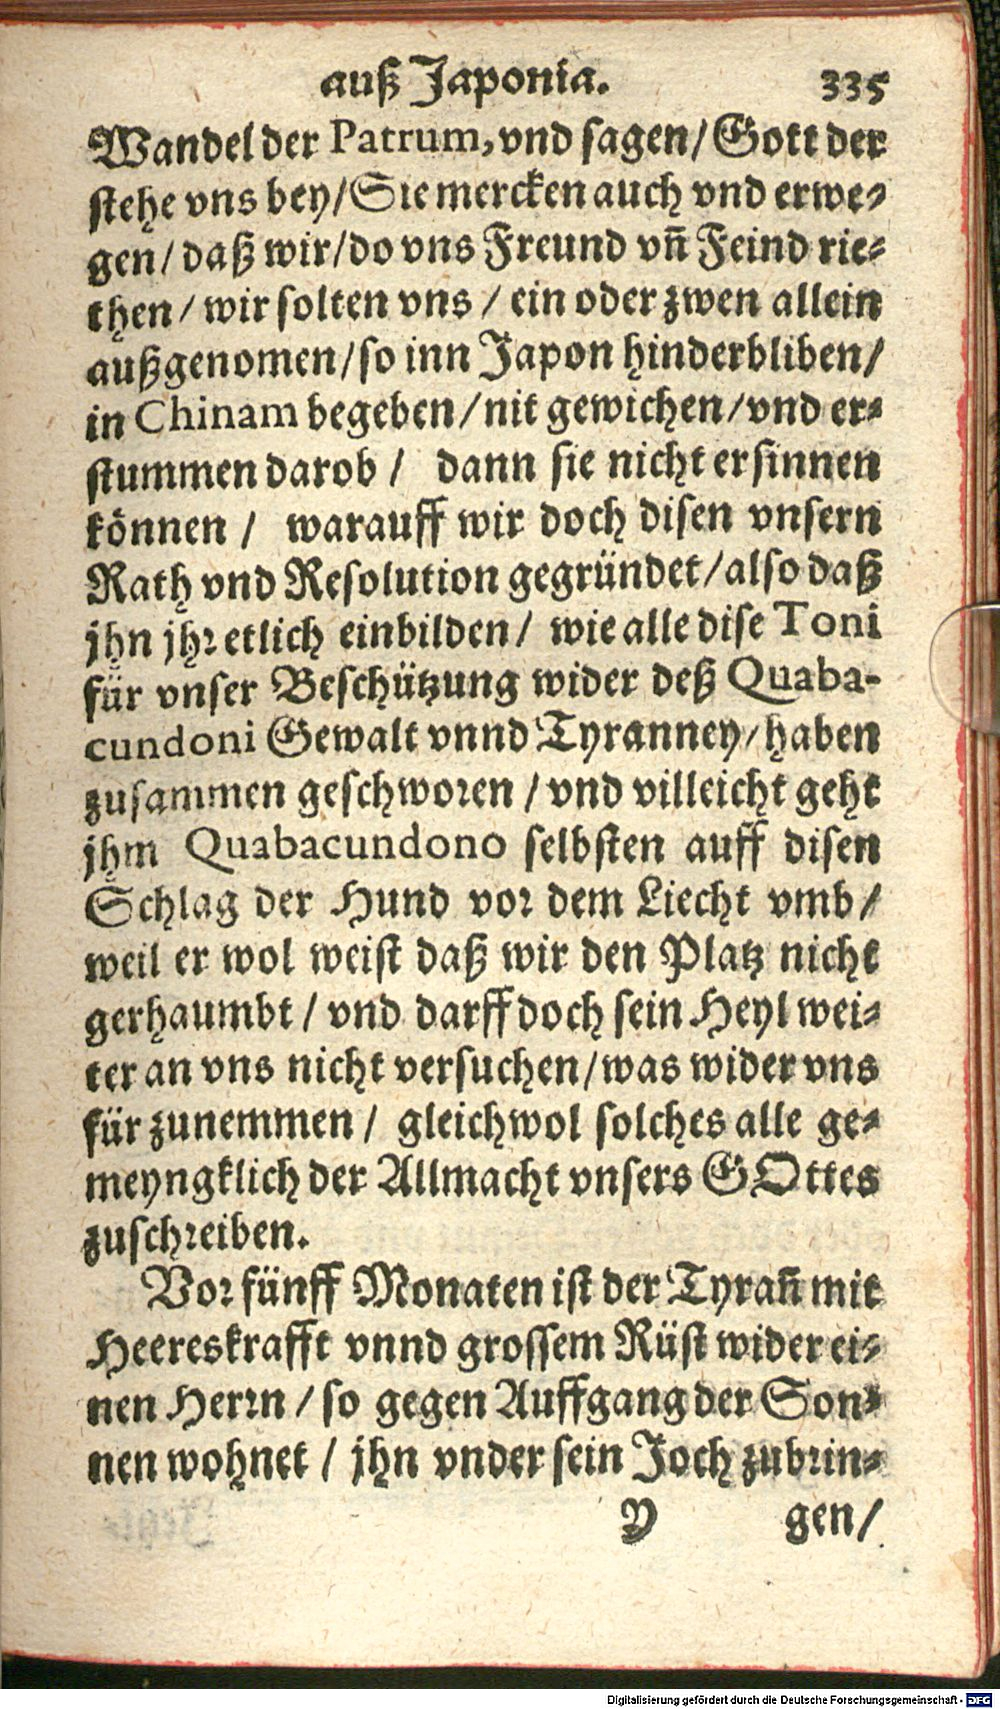 auß Japonia. 335
Wandel der Patrum, vnd sagen/ Gott der
stehe vns bey/ Sie mercken auch vnd erwe-
gen/ daß wir/ do vns Freund vñ Feind rie-
then/ wir solten vns/ ein oder zwen allein
außgenomen/ so inn Japon hinderbliben/
in Chinam begeben/ nit gewichen/ vnd er-
stummen darob/ dann sie nicht ersinnen
können/ warauff wir doch disen vnsern
Rath vnd Resolution gegründet/ also daß
jhn jhr etlich einbilden/ wie alle dise Toni
für vnser Beschützung wider deß Quaba-
cundoni Gewalt vnnd Tyranney/ haben
zusammen geschworen/ vnd villeicht geht
jhm Quabacundono selbsten auff disen
Schlag der Hund vor dem Liecht vmb/
weil er wol weist daß wir den Platz nicht
gerhaumbt/ vnd darff doch sein Heyl wei-
ter an vns nicht versuchen/ was wider vns
für zunemmen/ gleichwol solches alle ge-
meyngklich der Allmacht vnsers GOttes
zuschreiben.
Vor fünff Monaten ist der Tyrañ mit
Heereskrafft vnnd grossem Rüst wider ei-
nen Herrn/ so gegen Auffgang der Son-
nen wohnet/ jhn vnder sein Joch zubrin-
Y gen/
Digitalisierung gefördert durch die Deutsche Forschungsgemeinschaft - DFG